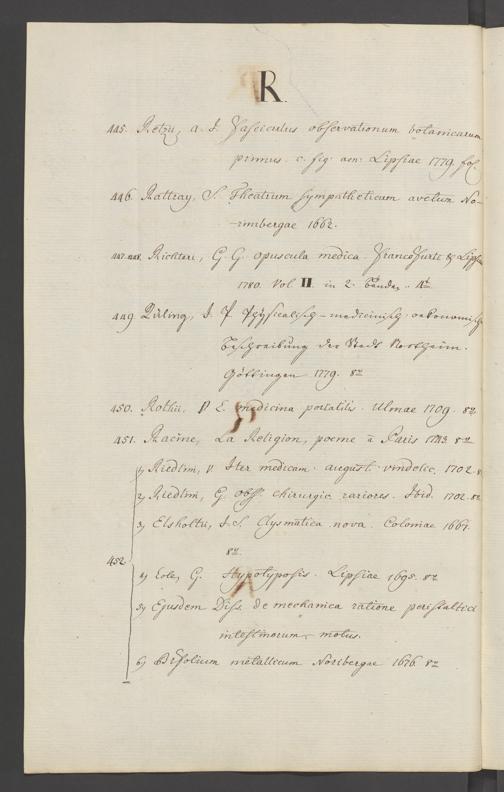 R.
445. Retzii, a. I. Fasciculus observationum botanicarum
primus. c. fig: aen: Lipsiae 1779. fol.
446. Rattray, S. Theatrum sympatheticum auctum No-
-rimbergae 1662.
447. 448. Richteri, G. G. opuscula medica. Francofurti & Lipsiae
1780. Vol II. in 2. bänden. 4t
449. I. P. physicalisch-medicinisch-oekonomisch
Beschreibung der Stadt Northeim.
Göttingen 1779. 8vo
450. Rothii, E. medicina portatilis. Ulmae 1709. 8vo
451. Racine, La Religion, poeme a Paris 8vo
452
1) Riedlini, V Iter medicam. august. vindelic. 1702.
2) Riedlini, G. Obss. chirurgic rariores. Ibid. 1702. 8vo
3) Elsholtii, I. S. Clysmatica nova. Coloniae 1667.
8vo
4) Cole, G. Hypotyposis. Lipsiae 1695. 8vo
5) Ejusdem Diss. de mechanica ratione peristaltici
intestinorum motus.
6) Bifolium metallicum Noribergae 1676. 8vo